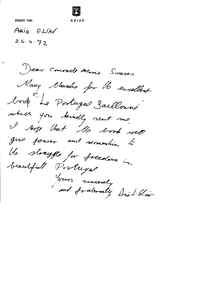 Arie Eliav
22.4.72
Dear comrade Mario Soares
Many thanks for the excellent
book "Le Portugal Baillonné"
which you kindly sent me.
I hope that the book will
give power and
to
the struggle for freedom in
beautiful Portugal
Yours sincerely
and fraternally